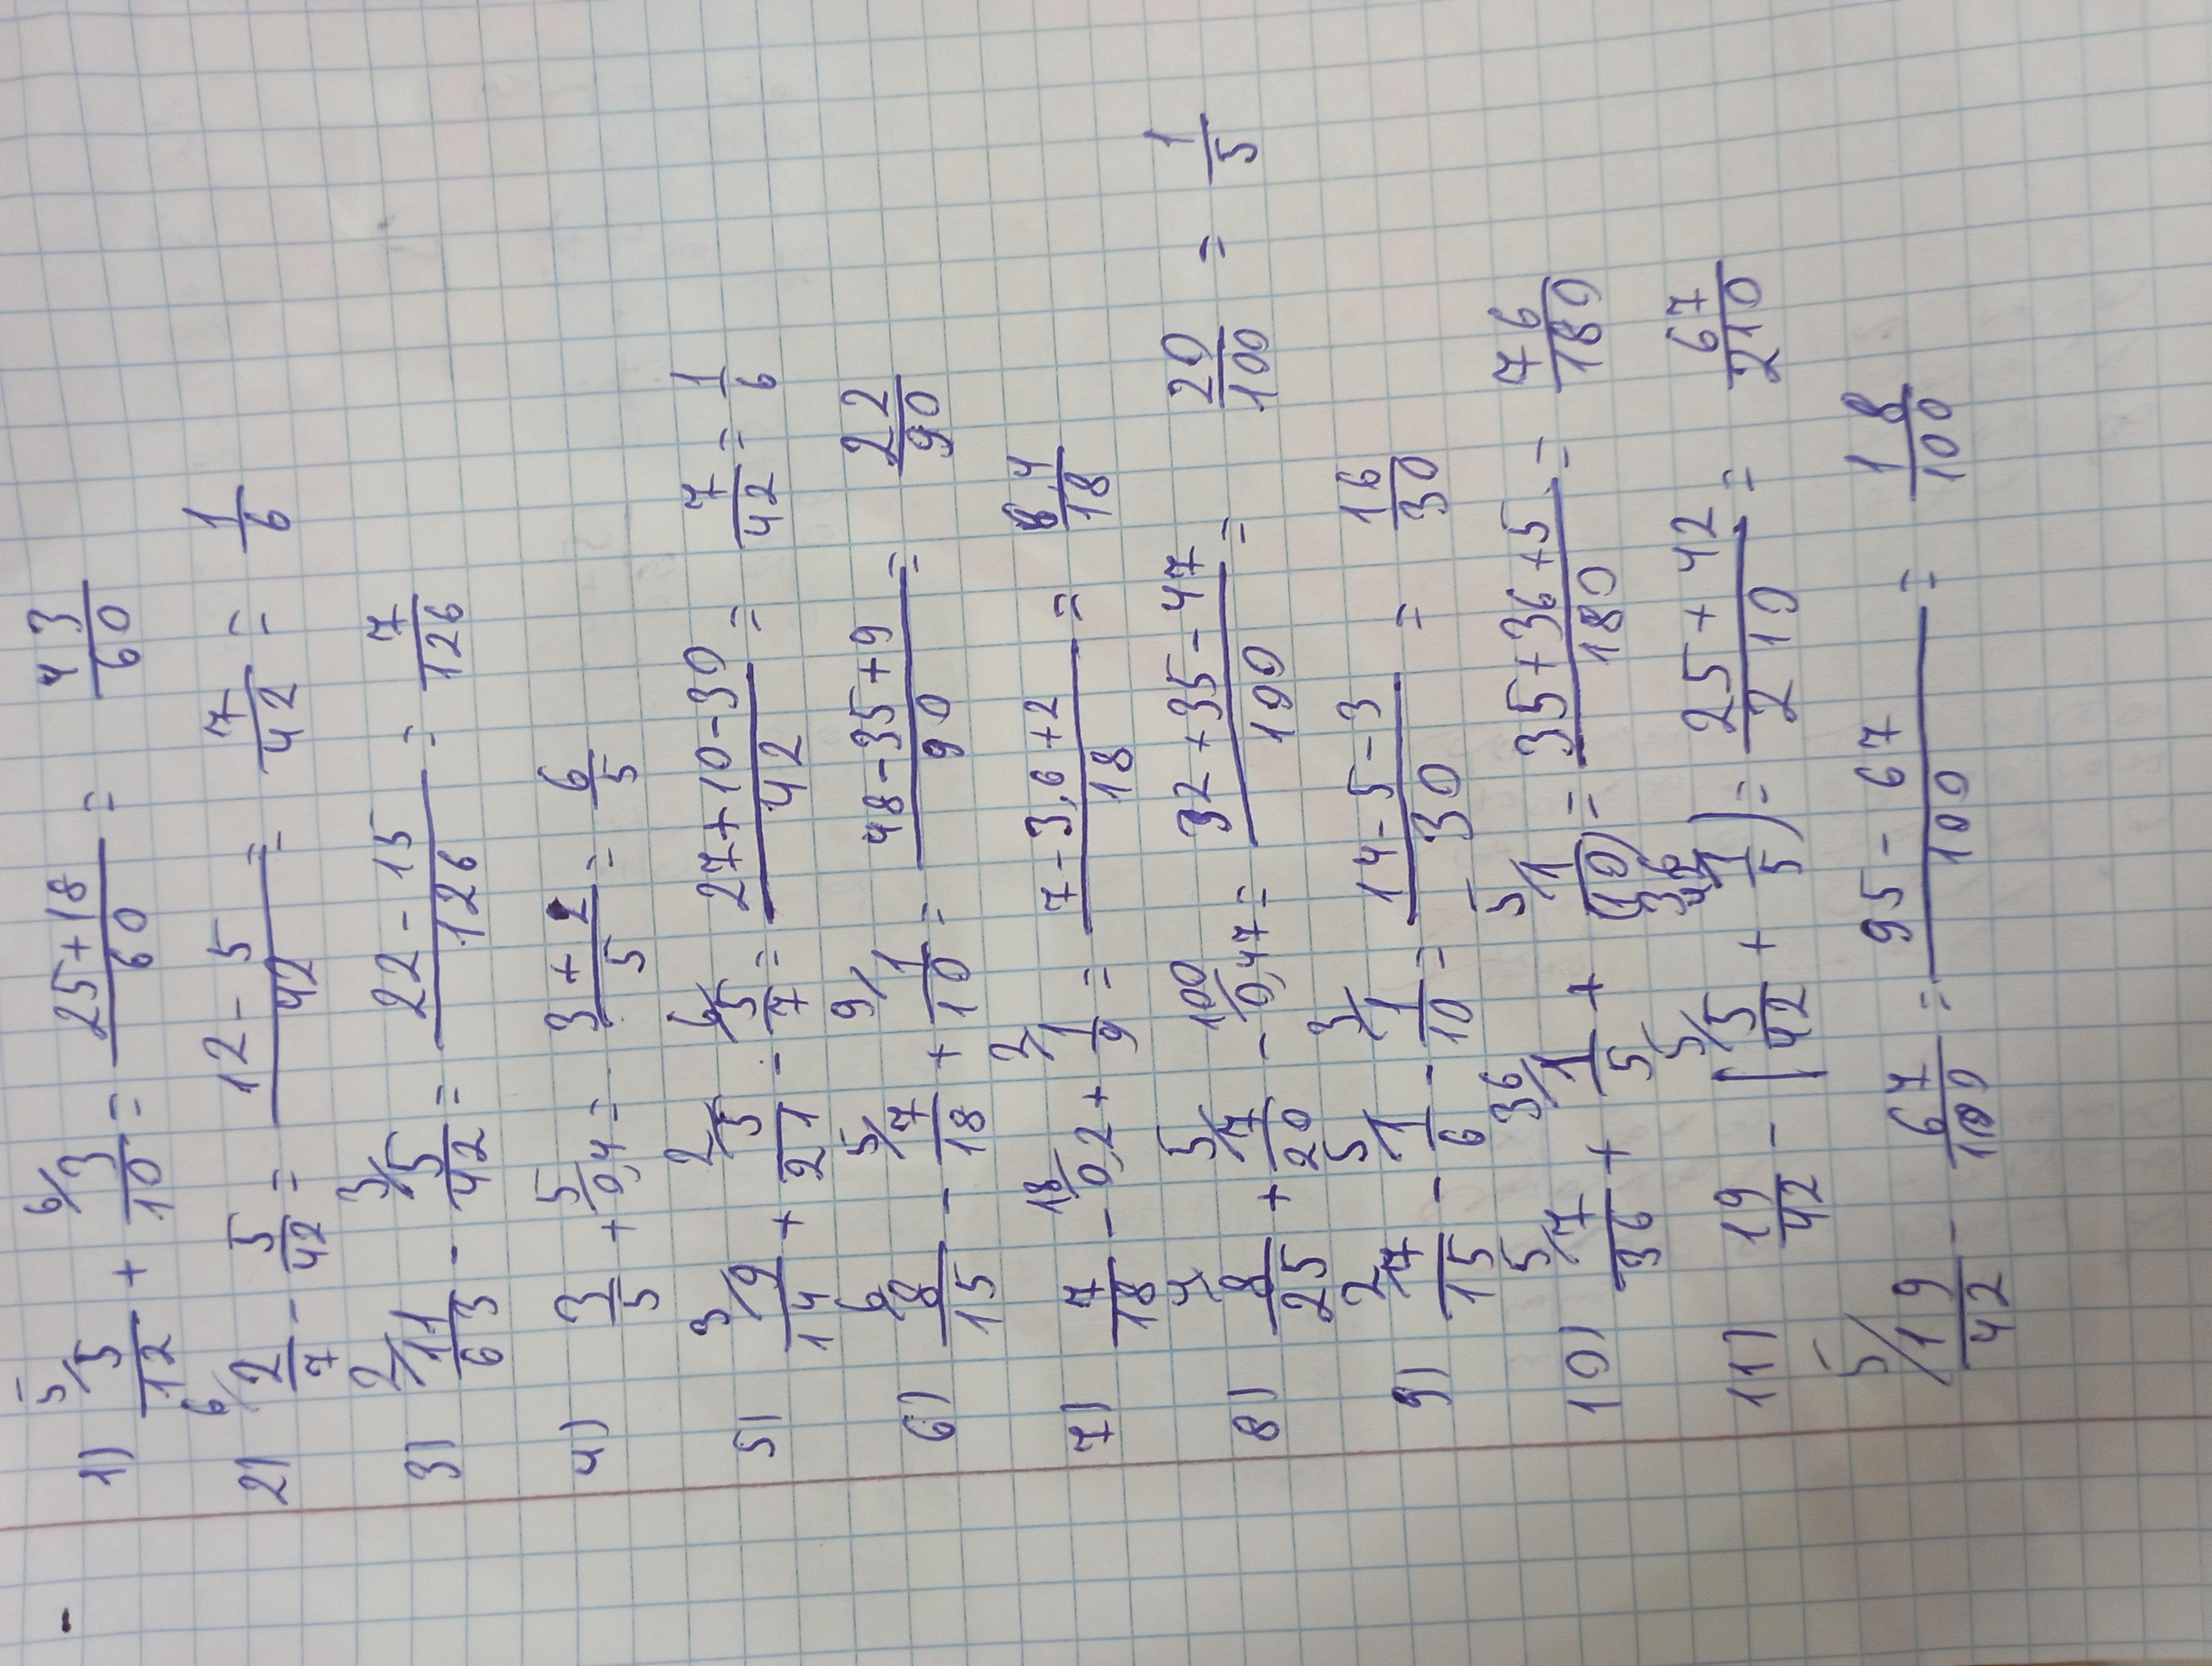 1) 5/ 5/12 + 6/ 3/10 = (25+18)/60 = 43/60
2) 6/ 2/7 - 5/42 = (12-5)/42 = 7/42 = 1/6
3) 2/ 11/63 - 3/ 5/42 = (22-15)/126 = 7/126
4) 3/5 + 5/ 0,4 = (3+2)/5 = 6/5
5) 3/ 9/14 + 2/ 5/21 - 6/ 5/7 = (27+10-30)/42 = 7/42 = 1/6
6) 6/ 8/15 - 5/ 7/18 + 9/ 1/10 = (48-35+9)/90 = 22/90
7) 7/18 - 18/ 0,2 + 2/ 1/9 = (7-3,6+2)/18 = 8,4/18
8) 4/ 8/25 + 5/ 7/20 - 100/ 0,47 = (32+35-47)/100 = 20/100 = 1/5
9) 2/ 7/15 - 5/ 1/6 - 3/ 1/10 = (14-5-3)/30 = 16/30
10) 5/ 7/36 + 36/ 1/5 + 5/ 1/36 = (35+36+5)/180 = 76/180
11) 19/42 - (5/ 5/42 + 42/ 1/5) = (25+42)/210 = 67/210
5/ 19/42 - 67/100 = (95-67)/100 = 18/100